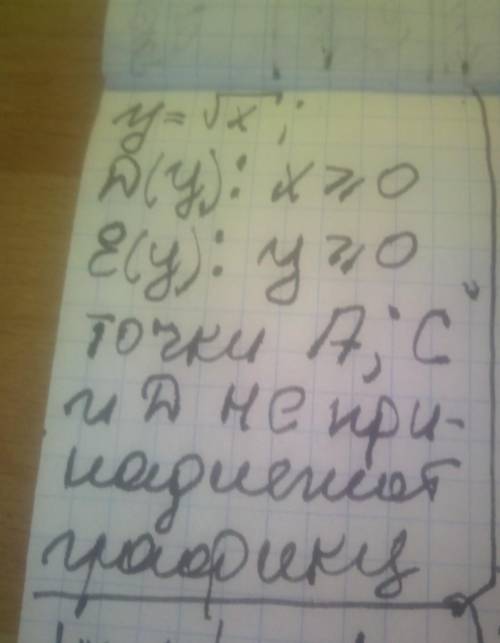 y = √x ;
D(y): x ⩾ 0
E(y): y ⩾ 0
точки A; C
и D не при-
надлежат
графику